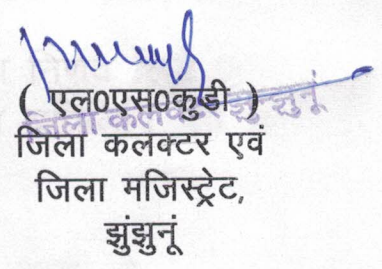 ( एल0एस0कुडी )
जिला कलक्टर झुंझुनूं
जिला कलक्टर एवं
जिला मजिस्ट्रेट,
झुंझुनूं